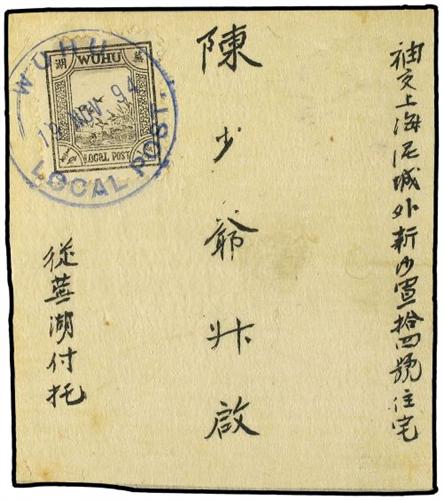 袖交上海泥城外新沙宣拾四號住宅
陳少爺升啟
從蕪湖付托
蕪
WUHU
湖
LOCAL POST
WUHU
19 NOV 94
LOCAL POST